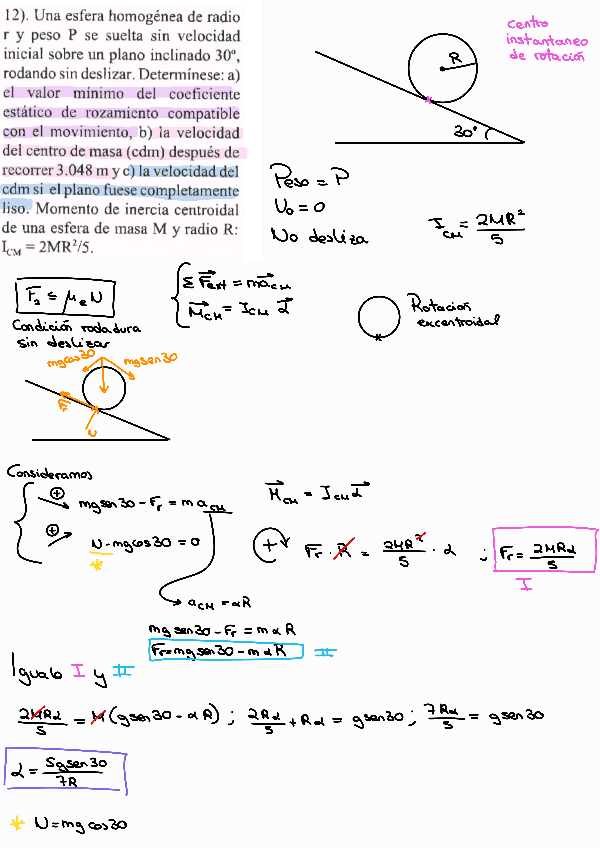 12). Una esfera homogénea de radio
r y peso P se suelta sin velocidad
inicial sobre un plano inclinado 30º,
rodando sin deslizar. Determínese: a)
el valor mínimo del coeficiente
estático de rozamiento compatible
con el movimiento, b) la velocidad
del centro de masa (cdm) después de
recorrer 3.048 m y c) la velocidad del
cdm si el plano fuese completamente
liso. Momento de inercia centroidal
de una esfera de masa M y radio R:
I_CM = 2MR²/5.
centro
instantaneo
de rotación
R
30º
Peso = P
V₀ = 0
No desliza
I_CM = 2MR²/5
Fr ≤ μe N
Condición rodadura
sin deslizar
Σ F⃗ext = m a⃗CM
M⃗CM = ICM α⃗
Rotación
excentroidal
mgcos30
mgsen30
Fr
N
Consideramos
⊕ mgsen30 - Fr = m aCM
⊕ N - mgcos30 = 0
*
aCM = αR
mgsen30 - Fr = mαR
Fr = mgsen30 - mαR II
M⃗CM = ICM α⃗
+ Fr · R = 2MR²/5 · α ; Fr = 2MRα/5
I
Igualo I y II
2MRα/5 = M(gsen30 - αR) ; 2Rα/5 + Rα = gsen30 ; 7Rα/5 = gsen30
α = 5gsen30/7R
* N = mgcos30